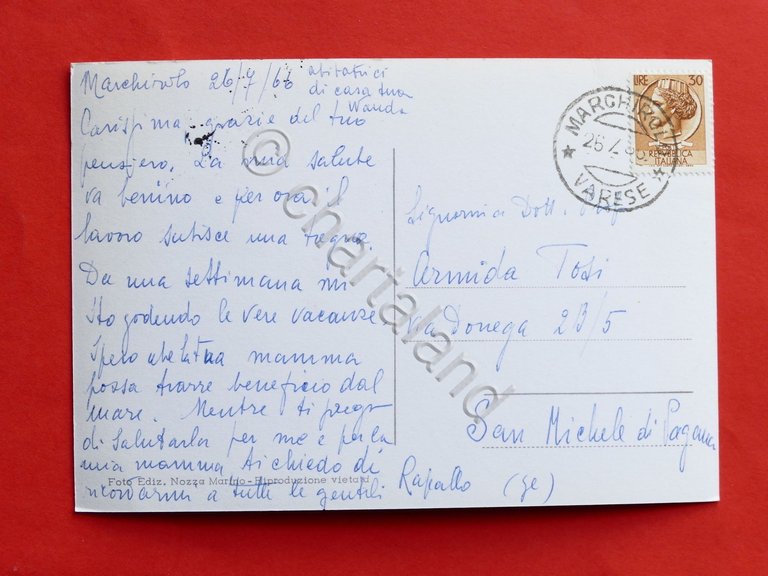 Marchirolo 26/7/66
Carissima, grazie del tuo
pensiero. La mia salute
va benino e per ora il
lavoro subisce una tregua.
Da una settimana mi
sto godendo le vere vacanze
Spero che la tua mamma
possa trarre beneficio dal
mare. Mentre ti prego
di salutarla per me e per la
mia mamma ti chiedo di
ricordarmi a tutte le gentili
abitatrici
di casa tua
Wanda
Foto Ediz. Nozza Marino - Riproduzione vietata
LIRE 30
REPVBBLICA
ITALIANA
MARCHIROLO
VARESE
Signorina Dott.
Armida Tosi
Via Donega 2B/5
San Michele di Pagana
Rapallo (ge)
© chartaland